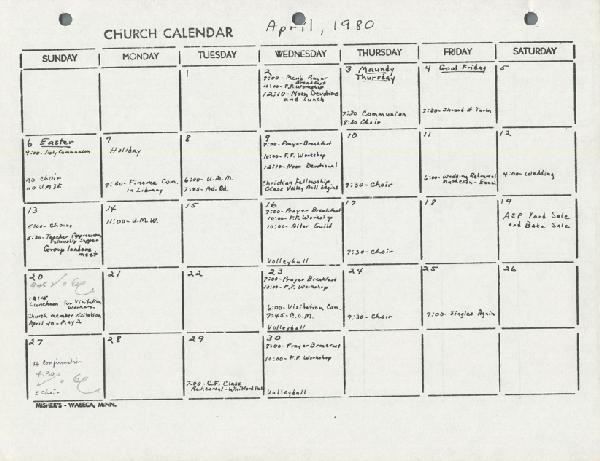 CHURCH CALENDAR April, 1980
SUNDAY MONDAY TUESDAY WEDNESDAY THURSDAY FRIDAY SATURDAY
1
2
7:00 - Men's Prayer
Breakfast
10:00 - P.F. Workshop
12:10 - Noon Devotional
and Lunch
3 Maundy
Thursday
7:30 Communion
8:30 Choir
4 Good Friday
7:30 - Shroud of Turin
5
6 Easter
no Choir
no UMYF
7
Holiday
7:30 - Finance Com.
in Library
8
9
7:00 - Prayer Breakfast
10:00 - P.F. Workshop
12:10 - Noon Devotional
Christian Fellowship
Class Volley Ball begins
10
7:30 - Choir
11
6:00 - Wedding Rehearsal
12
4:00 - Wedding
13
Choir
Group leaders
meet
14
11:00 - U.M.W.
15
16
7:00 - Prayer Breakfast
10:00 - P.F. Workshop
10:00 - Altar Guild
Volleyball
17
7:30 - Choir
18
19
Yard Sale
and Bake Sale
20
Luncheon for Visitation
Workers
Church member Visitation
21
22
23
7:00 - Prayer Breakfast
10:00 - P.F. Workshop
6:00 - Visitation Com.
7:45 - C.O.M.
Volleyball
24
7:30 - Choir
25
7:00 - Singles Again
26
27
Confirmation
Choir
28
29
7:00 - C.F. Class
30
7:00 - Prayer Breakfast
10:00 - P.F. Workshop
Volleyball
WASECA, MINN.